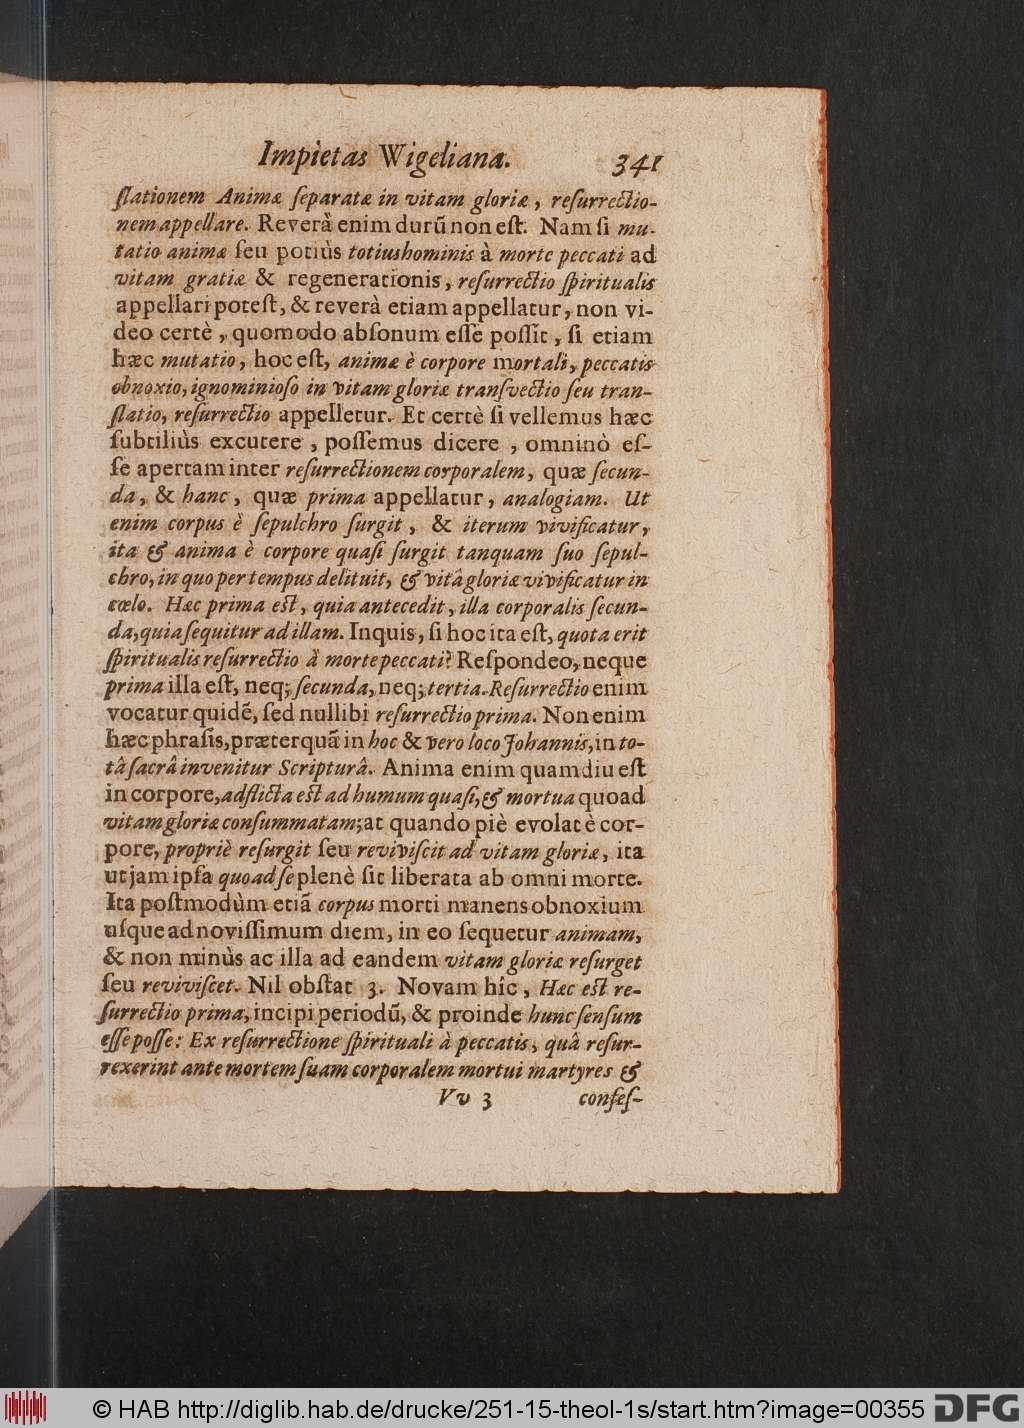 Impietas Wigeliana. 341
ſlationem Animæ ſeparatæ in vitam gloriæ, reſurrectio-
nem appellare. Reverà enim durũ non eſt. Nam ſi mu-
tatio animæ ſeu potiùs totius hominis à morte peccati ad
vitam gratiæ & regenerationis, reſurrectio ſpiritualis
appellari poteſt, & reverà etiam appellatur, non vi-
deo certè, quomodo abſonum eſſe poſſit, ſi etiam
hæc mutatio, hoc eſt, animæ è corpore mortali, peccatis
obnoxio, ignominioſo in vitam gloriæ tranſvectio ſeu tran-
ſlatio, reſurrectio appelletur. Et certè ſi vellemus hæc
ſubtiliùs excutere, poſſemus dicere, omninò eſ-
ſe apertam inter reſurrectionem corporalem, quæ ſecun-
da, & hanc, quæ prima appellatur, analogiam. Ut
enim corpus è ſepulchro ſurgit, & iterum vivificatur,
ita & anima è corpore quaſi ſurgit tanquam ſuo ſepul-
chro, in quo per tempus delituit, & vitâ gloriæ vivificatur in
cœlo. Hæc prima eſt, quia antecedit, illa corporalis ſecun-
da, quia ſequitur ad illam. Inquis, ſi hoc ita eſt, quota erit
ſpiritualis reſurrectio à morte peccati? Reſpondeo, neque
prima illa eſt, neq; ſecunda, neq; tertia. Reſurrectio enim
vocatur quidẽ, ſed nullibi reſurrectio prima. Non enim
hæc phraſis, præterquã in hoc & vero loco Johannis, in to-
tâ ſacrâ invenitur Scripturâ. Anima enim quamdiu eſt
in corpore, adflicta eſt ad humum quaſi, & mortua quoad
vitam gloriæ conſummatam; at quando piè evolat è cor-
pore, propriè reſurgit ſeu reviviſcit ad vitam gloriæ, ita
ut jam ipſa quoad ſe plenè ſit liberata ab omni morte.
Ita poſtmodùm etiã corpus morti manens obnoxium
uſque ad noviſſimum diem, in eo ſequetur animam,
& non minùs ac illa ad eandem vitam gloriæ reſurget
ſeu reviviſcet. Nil obſtat 3. Novam hîc, Hæc est re-
ſurrectio prima, incipi periodũ, & proinde hunc ſenſum
eſſe poſſe: Ex reſurrectione ſpirituali à peccatis, quâ reſur-
rexerint ante mortem ſuam corporalem mortui martyres &
Vv 3 confeſ-
© HAB http://diglib.hab.de/drucke/251-15-theol-1s/start.htm?image=00355 DFG